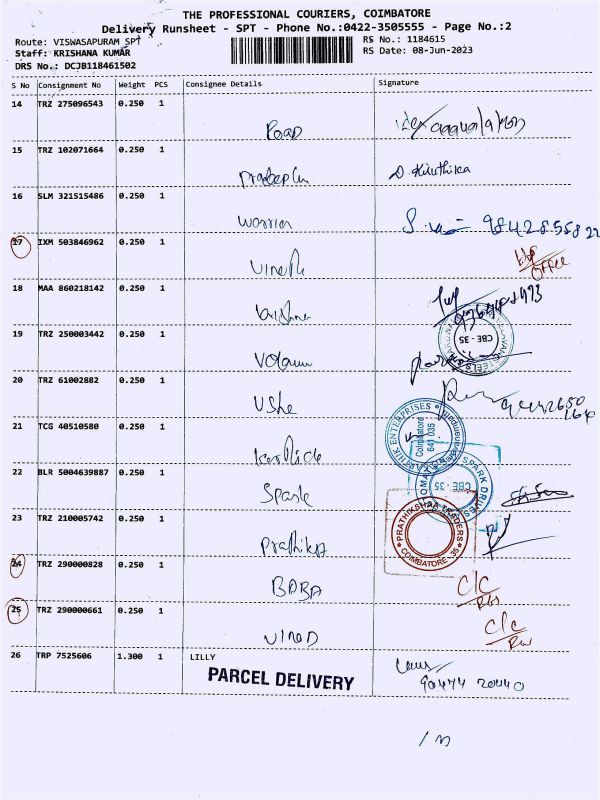 THE PROFESSIONAL COURIERS, COIMBATORE
Delivery Runsheet - SPT - Phone No.:0422-3505555 - Page No.:2
Route: VISWASAPURAM SPT
RS No.: 1184615
Staff: KRISHANA KUMAR
RS Date: 08-Jun-2023
DRS No.: DCJB118461502
S No Consignment No Weight PCS Consignee Details Signature
14 TRZ 275096543 0.250 1
Road
15 TRZ 102071664 0.250 1
Pradeep D. Kiruthika
16 SLM 321515486 0.250 1
Warrior
17 IXM 503846962 0.250 1
Vineth Office
18 MAA 860218142 0.250 1
Krishna
19 TRZ 250003442 0.250 1
CBE - 35
20 TRZ 61002882 0.250 1
Usha
21 TCG 40510580 0.250 1
KARTHIK ENTERPRISES
Coimbatore
641 035
Karthick
22 BLR 5004639887 0.250 1
SPARK DRIVES
CBE - 35
Spark
23 TRZ 210005742 0.250 1
PRATHIKSHAA TRADERS
COIMBATORE - 35
Prathika
24 TRZ 290000828 0.250 1
BABA C/C
25 TRZ 290000661 0.250 1
VINOD C/C
26 TRP 7525606 1.300 1 LILLY
PARCEL DELIVERY
90474 20040